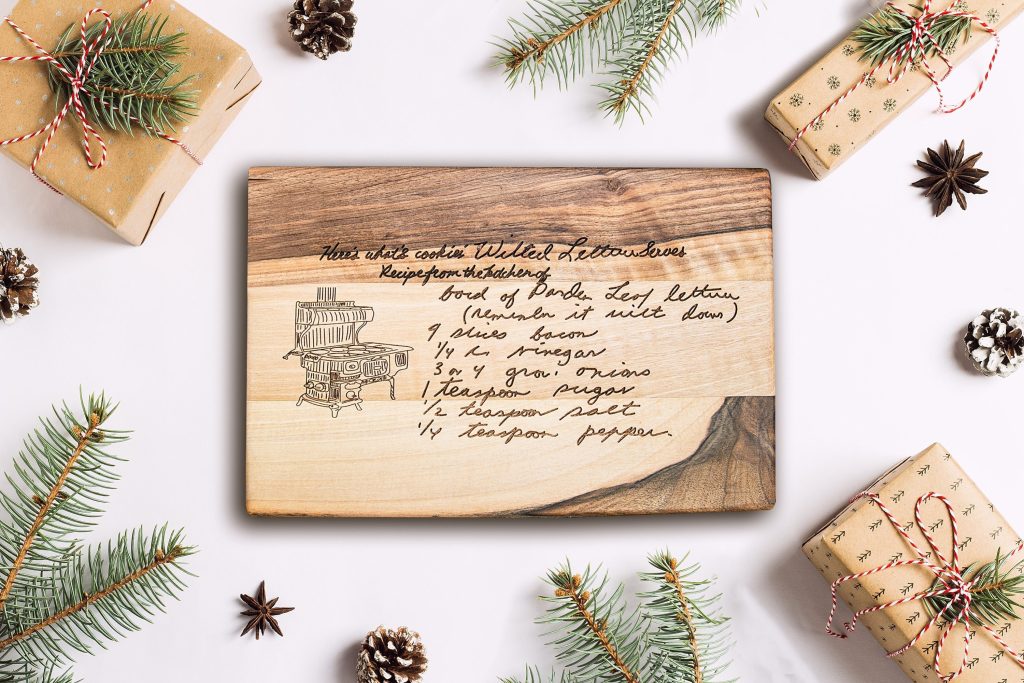 Here's what's cookin' Wilted Lettuce Serves
Recipe from the kitchen of
bowl of Garden Leaf lettuce
(remember it wilt down)
9 slices bacon
1/4 c. vinegar
3 or 4 gr. onions
1 teaspoon sugar
1/2 teaspoon salt
1/4 teaspoon pepper.